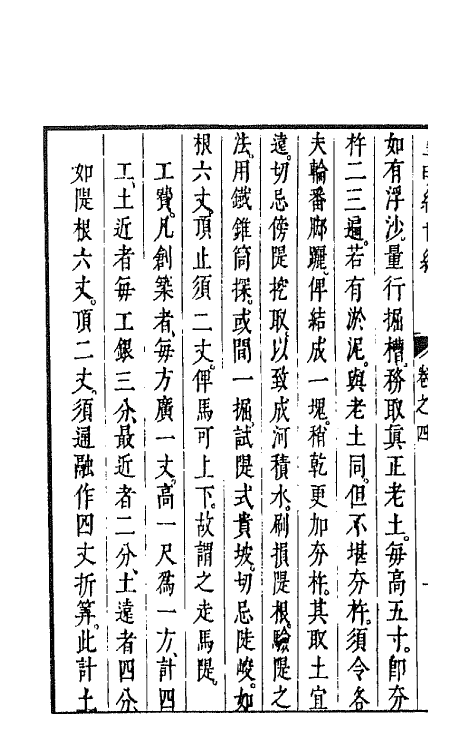 卷之四
如有浮沙量行掘槽。務取眞正老土。每高五寸。即夯
杵二三遍。若有淤泥。與老土同。但不堪夯杵。須令各
夫輪番脚躧。俾結成一塊。稍乾更加夯杵。其取土宜
遠。切忌傍隄挖取。以致成河積水。刷損隄根。驗隄之
法。用鐵錐筒探。或間一掘試隄式貴坡。切忌陡峻。如
根六丈。頂止須二丈。俾馬可上下。故謂之走馬隄。
工費。凡創築者、每方廣一丈。高一尺爲一方、計四
工、土近者每工銀三分、最近者二分、土遠者四分
如隄根六丈。頂二丈。須通融作四丈折筭。此計土